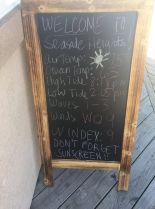 WELCOME TO
Seaside Heights!
Air Temp:
Ocean Temp:
High Tide
Low Tide
Waves 1-3
Winds
UV INDEX: 9
DON'T FORGET
SUNSCREEN!!